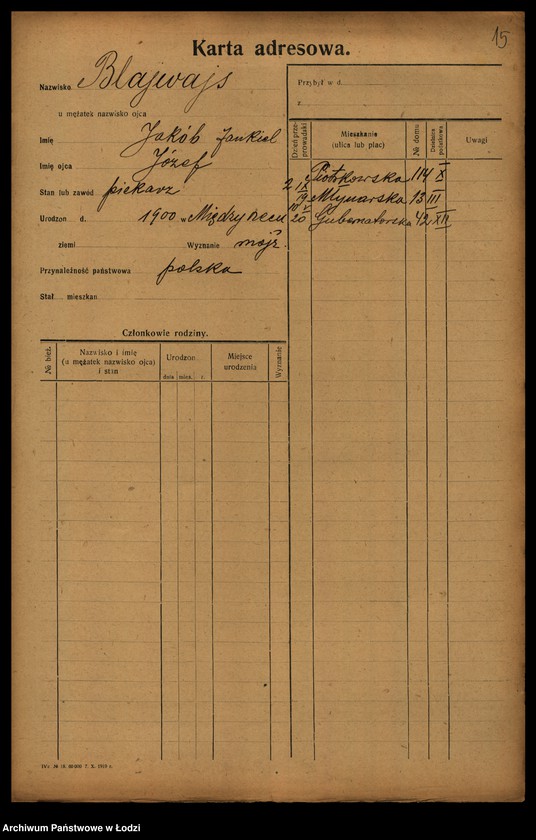 15
Karta adresowa.
Nazwisko Blajwajs
u mężatek nazwisko ojca
Imię Jakób Jankiel
Imię ojca Józef
Stan lub zawód piekarz
Urodzon d. 1900 w Międzyrzecu
ziemi Wyznanie mojż.
Przynależność państwowa polska
Stał. mieszkan.
Przybył w d.
z
Dzień prze-prowadzki
Mieszkanie
(ulica lub plac)
№ domu
Dzielnica policyjna
Uwagi
Piotrkowska 114 X
2 IX 19 Młynarska 13 III
20 Gubernatorska 42 XII
Członkowie rodziny.
№ bież.
Nazwisko i imię
(u mężatek nazwisko ojca)
i stan
Urodzon
dnia mies. r.
Miejsce
urodzenia
Wyznanie
7. X. 1918 r.
Archiwum Państwowe w Łodzi